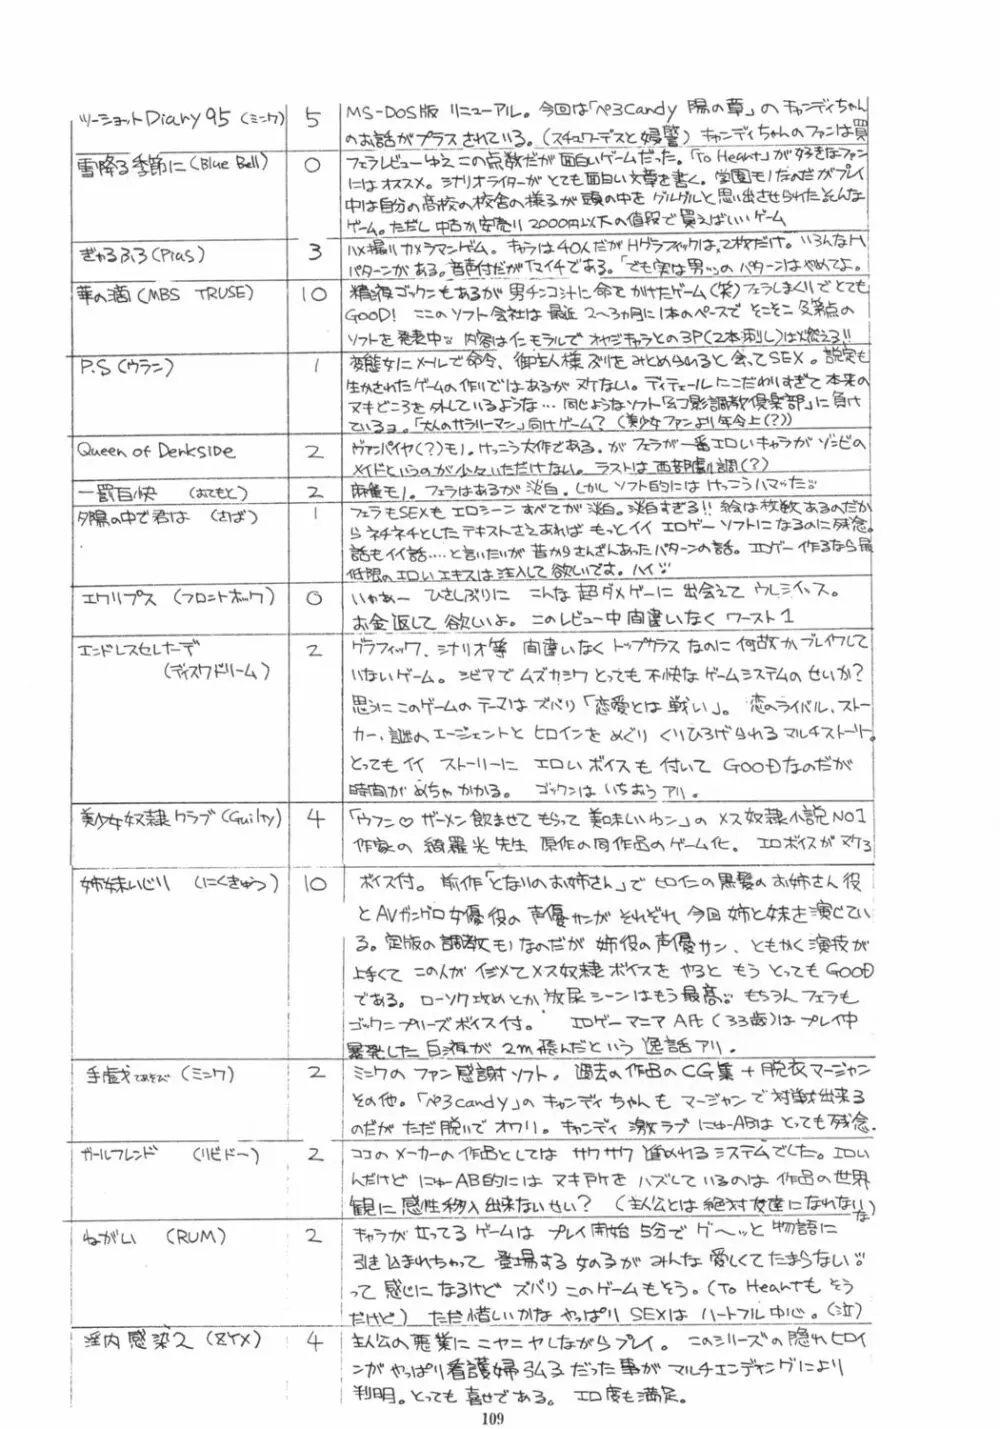 ツーショットDiary95(ミンク) 5 MS-DOS版 リニューアル。今回は「ぺろCandy 陽の章」のキャンディちゃん
のお話がプラスされている。(スチュワーデスと婦警) キャンディちゃんのファンは買
雪降る季節に(Blue Bell) 0 フェラレビューゆえ この点数だが面白いゲームだった。「To Heart」が好きなファン
にはオススメ。シナリオライターがとても面白い文章を書く。学園モノなのだがプレイ
中は自分の高校の校舎の様子が頭の中をグルグルと思い出させられたそんな
ゲーム。ただし中古か安売り2000円以下の値段で買えばいいゲーム
ぎゃるふろ(Pias) 3 ハメ撮りカメラマンゲーム。キャラは40人だがHグラフィックは、2枚だけ。いろんなH
パターンがある。音声付だがイマイチである。「でも実は男」のパターンはやめてよ。
華の滴(MBS TRUSE) 10 精液ゴックンもあるが男チンコ汁に命をかけたゲーム(笑)フェラしまくりでとても
GOOD! ここのソフト会社は最近 2〜3ヵ月に1本のペースで そこそこ 及第点の
ソフトを発表中。内容はイモラルで オヤジキャラとの3P(2本刺し)は燃える!!
P.S(ウラン) 1 変態女にメールで命令、御主人様ぶりをみとめられると会ってSEX。設定も
生かされたゲームの作りではあるがヌケない。ディテールにこだわりすぎて本来の
ヌキどころを外しているような… 同じようなソフト「幻影調教倶楽部」に負け
ているヨ。「大人のサラリーマン」向けゲーム?(美少女ファンより年令上(?))
Queen of Denkside 2 ヴァンパイヤ(?)モノ。けっこう大作である。が フェラが一番エロいキャラがゾンビの
メイドというのが少々いただけない。ラストは西部劇調(?)
一罰百快 (おてもと) 2 麻雀モノ。フェラはあるが淡白。しかしソフト的にはけっこうハマッた
夕陽の中で君は (さば) 1 フェラもSEXも エロシーン すべてが淡白。淡白すぎる!! 絵は枚数あるのだか
らネチネチとしたテキストさえあれば もっとイイ エロゲーソフトになるのに残念。
話もイイ話‥‥と言いたいが昔からさんざんあったパターンの話。エロゲー作るなら最
低限のエロい エキスは注入して欲しいです。ハイ
エクリプス (フロントホック) 0 いやあー ひさしぶりに こんな超ダメゲーに出会えて ウレシイッス。
お金返して 欲しいよ。このレビュー中間違いなく ワースト1
エンドレスセレナーデ 2 グラフィック、シナリオ等 間違いなく トップクラスなのに 何故かブレイクして
(ディスクドリーム) いないゲーム。シビアでムズカシクとっても不快なゲームシステムのせいか?
思うにこのゲームのテーマは ズバリ「恋愛とは戦い」。恋のライバル、ストー
カー、謎のエージェントと ヒロインを めぐり くりひろげられる マルチストーリー。
とってもイイ ストーリーに エロいボイスも付いて GOODなのだが
時間が めちゃかかる。 ゴックンは いちおう アリ。
美少女奴隷クラブ(Guilty) 4 「ウフン♡ ザーメン飲ませて もらって 美味しいわン」の メス奴隷小説NO1
作家の 綺羅光先生 原作の同作品のゲーム化。エロボイスがヌケる
姉妹いじり (にくきゅう) 10 ボイス付。前作「となりのお姉さん」で ヒロインの黒髪のお姉さん役
とAVガングロ女優役の 声優サンが それぞれ今回 姉と妹を演じてい
る。定版の 調教モノなのだが 姉役の声優サン、ともかく演技が
上手くて この人が イジメてメス奴隷ボイスを やると もう とってもGOOD
である。ローソク攻めとか 放尿シーンはもう最高 もちろん フェラも
ゴックンプリーズボイス付。 エロゲーマニア A氏(33歳)は プレイ中
暴発した 白液が 2m飛んだという 逸話アリ。
手戯 てあそび (ミンク) 2 ミンクの ファン感謝ソフト。過去の作品のCG集+脱衣マージャン
その他。「ぺろcandy」の キャンディちゃんも マージャンで対戦出来る
のだが ただ脱いで オワリ。キャンディ激ラブ にゅーABは とっても残念。
ガールフレンド (リビドー) 2 ココの メーカーの作品としては サクサク進められるシステムでした。エロい
んだけど にゅーAB的には ヌキドコを ハズしているのは 作品の世界
観に 感性移入出来ないせい? (主人公とは絶対友達になれないな)
ねがい (RUM) 2 キャラが立ってるゲームは プレイ開始 5分で グ〜ッと 物語に
引き込まれちゃって 登場する 女のコが みんな 愛しくてたまらない
って 感じに なるけど ズバリ このゲームもそう。(To Heartも そう
だけど) ただ惜しいかな やっぱり SEXは ハートフル中心。(泣)
淫内感染2 (ZYX) 4 主人公の悪業に ニヤニヤしながらプレイ。このシリーズの隠れヒロイ
ンが やっぱり看護婦 だった事が マルチエンディングにより
判明。とっても 喜せである。エロ度も満足。
109